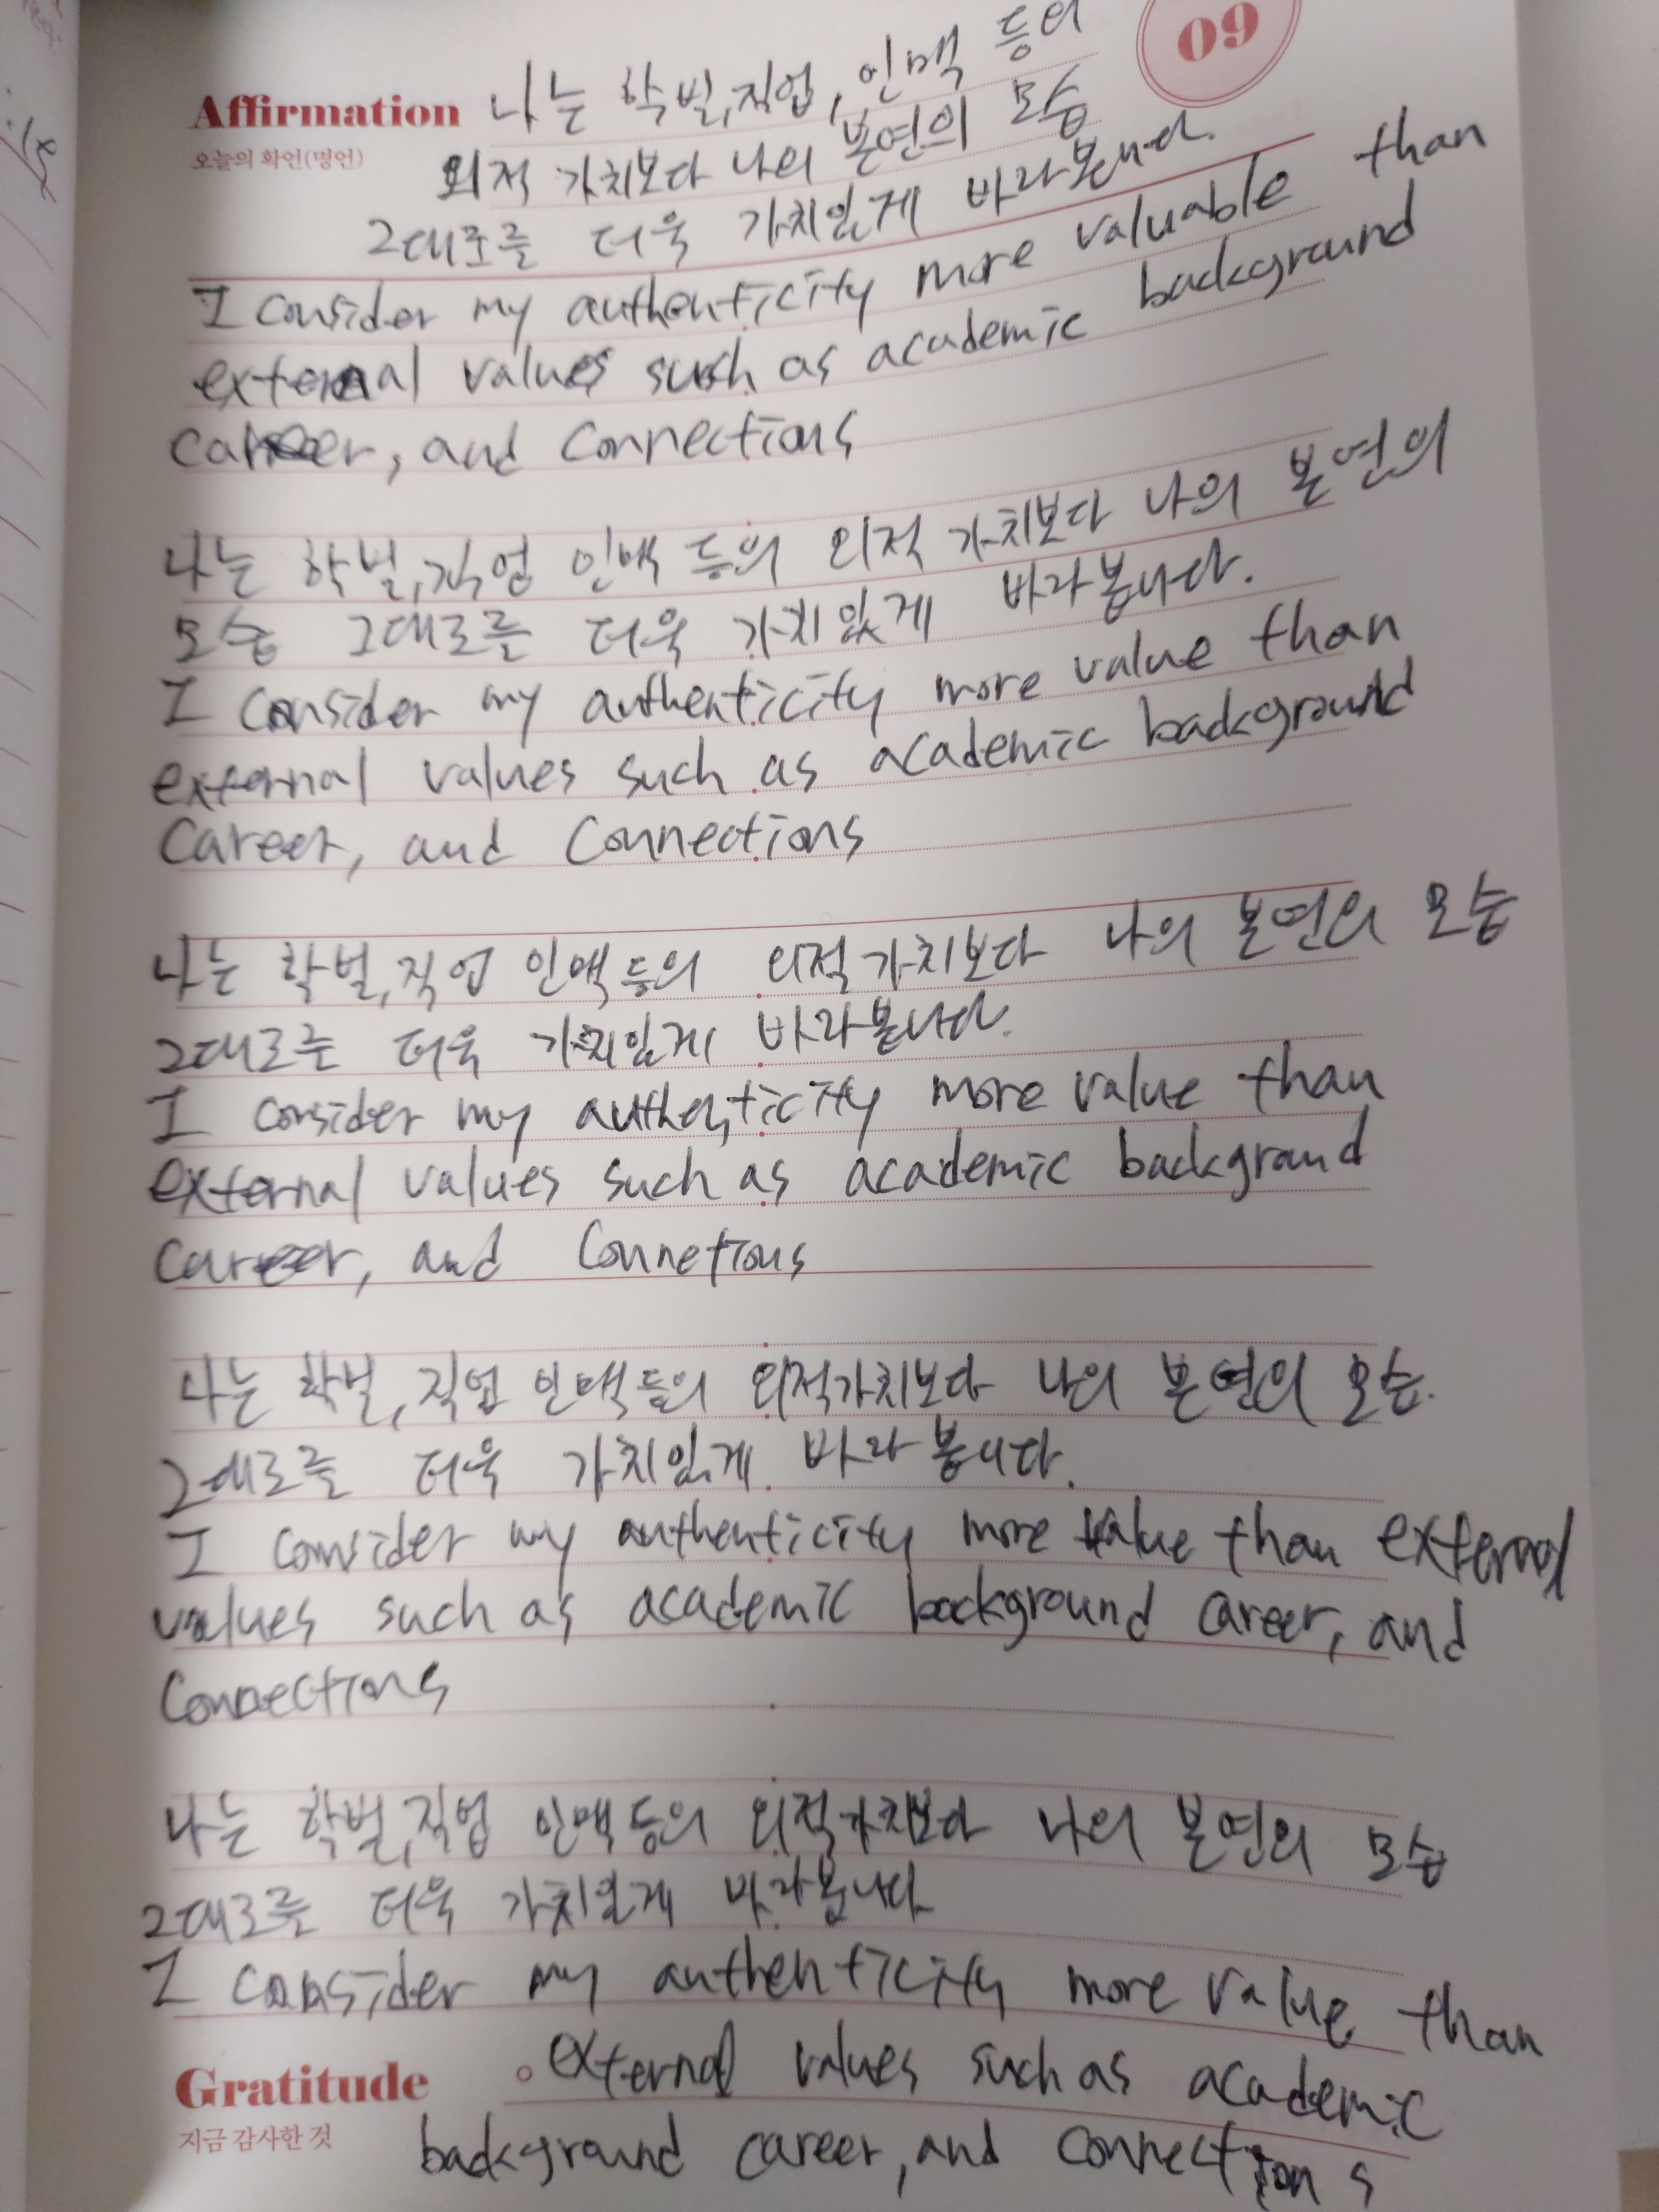 09
Affirmation 나는 학벌,직업, 인맥 등의
오늘의 확언(명언)
외적 가치보다 나의 본연의 모습
그대로를 더욱 가치있게 바라봅니다.
I consider my authenticity more valuable than
external values such as academic background
career, and connections
나는 학벌,직업 인맥 등의 외적 가치보다 나의 본연의
모습 그대로를 더욱 가치있게 바라봅니다.
I consider my authenticity more value than
external values such as academic background
career, and connections
나는 학벌,직업 인맥등의 외적가치보다 나의 본연의 모습
그대로를 더욱 가치있게 바라봅니다.
I consider my authenticity more value than
external values such as academic background
career, and connetions
나는 학벌,직업 인맥등의 외적가치보다 나의 본연의 모습.
그대로를 더욱 가치있게 바라봅니다.
I consider my authenticity more value than external
values such as academic background career, and
connections
나는 학벌,직업 인맥등의 외적가치보다 나의 본연의 모습
그대로를 더욱 가치있게 바라봅니다
I consider my authenticity more value than
Gratitude external values such as academic
지금 감사한 것
background career, and connections